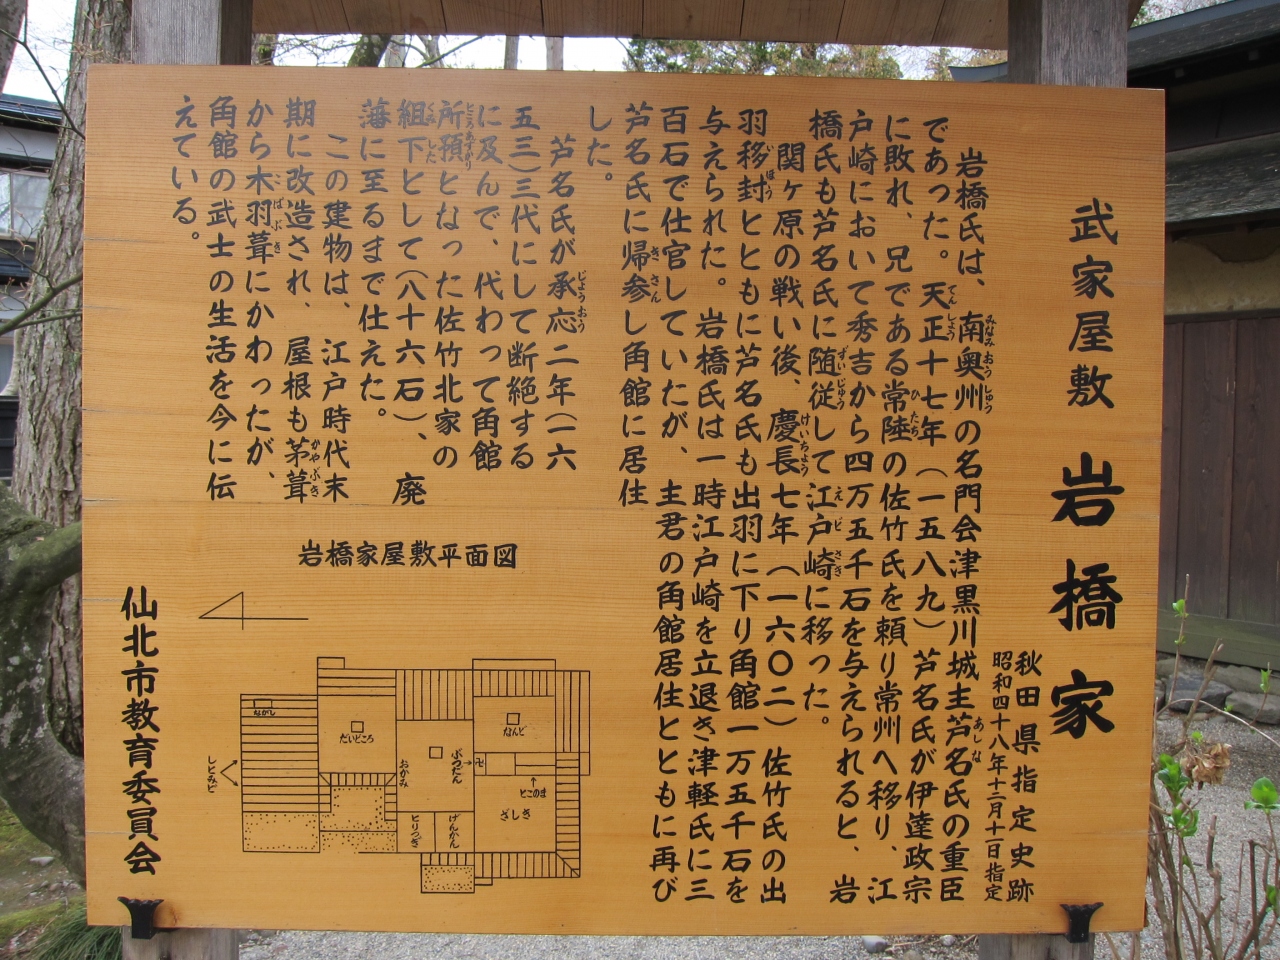 武家屋敷 岩橋家
秋田県指定史跡
昭和四十八年十二月十一日指定
岩橋氏は、南奥州の名門会津黒川城主芦名氏の重臣
であった。天正十七年（一五八九）芦名氏が伊達政宗
に敗れ、兄である常陸の佐竹氏を頼り常州へ移り、江
戸崎において秀吉から四万五千石を与えられると、岩
橋氏も芦名氏に随従して江戸崎に移った。
関ヶ原の戦い後、慶長七年（一六〇二）佐竹氏の出
羽移封とともに芦名氏も出羽に下り角館一万五千石を
与えられた。岩橋氏は一時江戸崎を立退き津軽氏に三
百石で仕官していたが、主君の角館居住とともに再び
芦名氏に帰参し角館に居住
した。
芦名氏が承応二年（一六
五三）三代にして断絶する
に及んで、代わって角館
所預となった佐竹北家の
組下として（八十六石）、廃
藩に至るまで仕えた。
この建物は、江戸時代末
期に改造され、屋根も茅葺
から木羽葺にかわったが、
角館の武士の生活を今に伝
えている。
みなみおうしゅう
あしな
てんしょう
ひたち
ずいじゅう
えどさき
けいちょう
ほう
きさん
じょうおう
ところあずかり
くみした
かやぶき
ばぶき
岩橋家屋敷平面図
ながし
だいどころ
なんど
ぶつだん
おかみ
とこのま
しとみど
ざしき
とりつぎ
げんかん
仙北市教育委員会